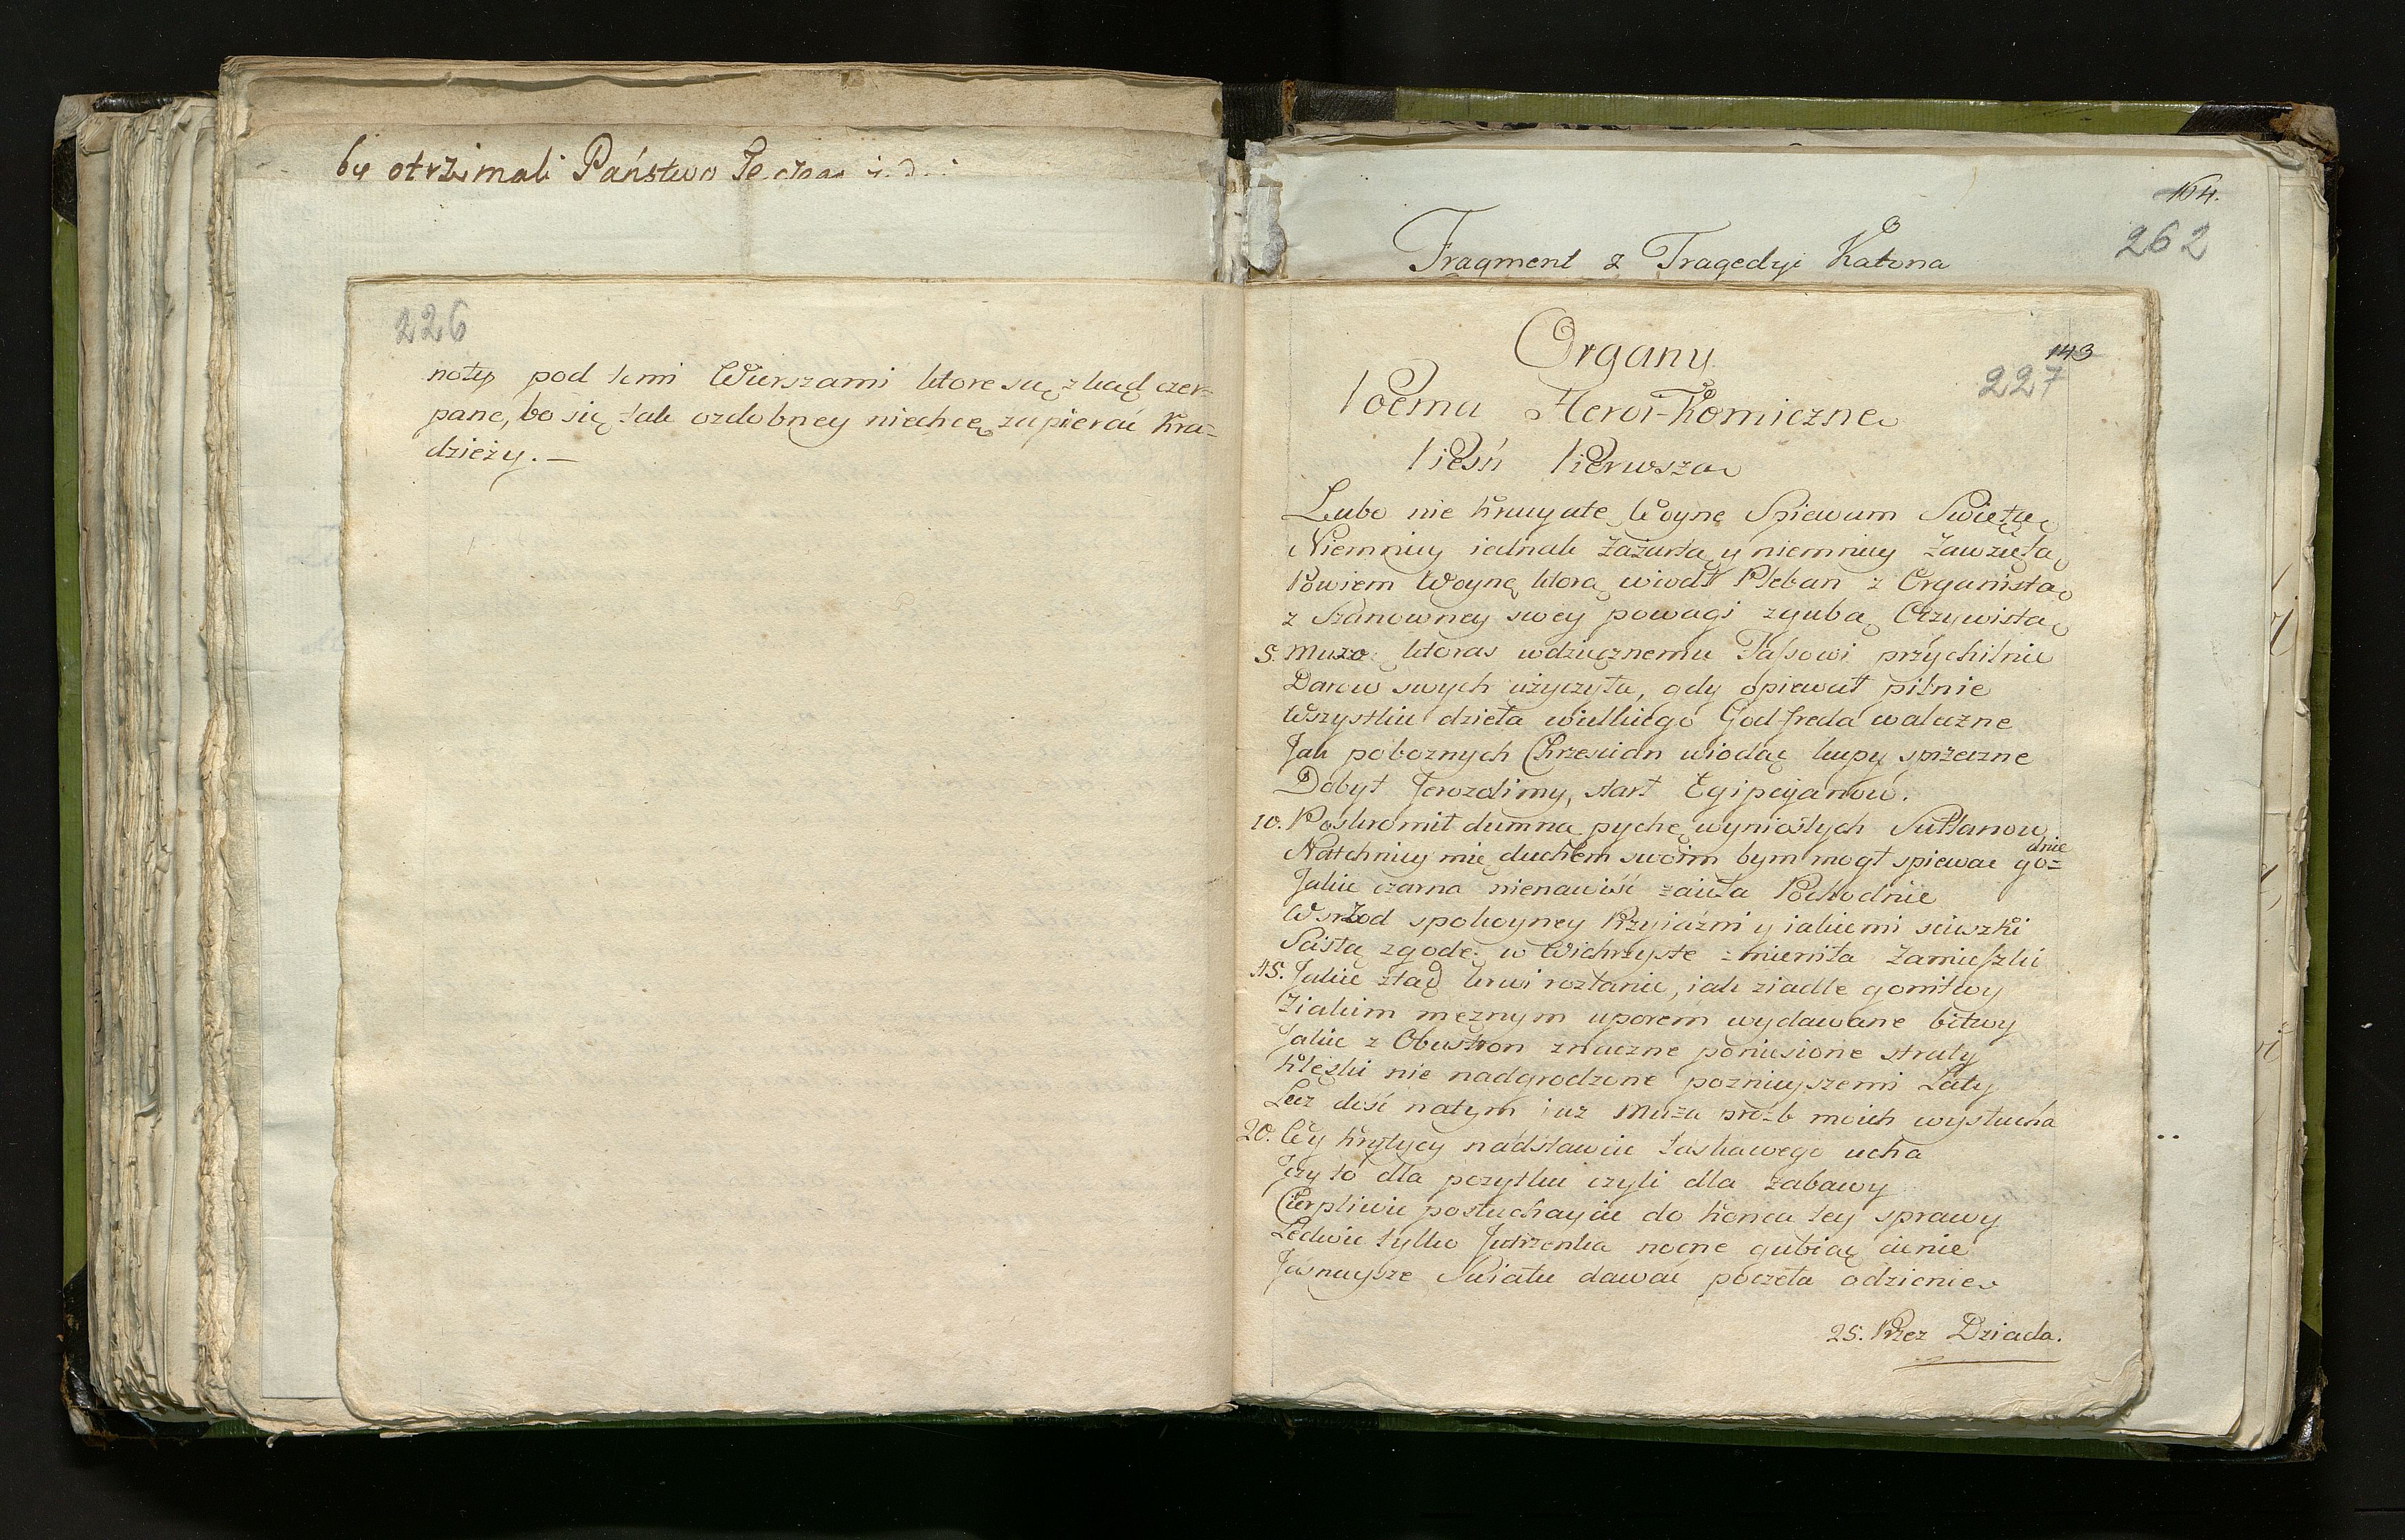 by otrzimali Państwo
226
noty pod temi Wierszami ktore są zkąd czer-
pane, bo się tak ozdobney niechcę zapierać Kra=
dzieży. —
164.
262
Fragment z Tragedyi Katona
Organy
143
227
Poema Heroi-Komiczne
Pieśń Pierwsza
Lubo nie krucyatę Woynę Spiewam Swiętą
Niemniey iednak zażartą y niemniey zawziętą
Powiem Woynę ktorą wiodł Pleban z Organistą
z Szanowney swey powagi zgubą Oczywistą
5. Muzo ktoras wdzięcznemu Tassowi przychilnie
Darow swych użyczyła, gdy opiewał pilnie
Wszystkie dzieła wielkiego Godfreda waleczne
Jak poboznych Chrzescian wiodąc kupy sprzeczne
Dobył Jerozolimy, starł Egipcyanow.
10. Poskromił dumną pychę wyniosłych Sułtanow
Natchniey mię duchem swoim bym mogł spiewac go=
dnie
Jakie czarna nienawiść zaięła Pochodnie
Wsrzod spokoyney Przyiaźni y iakiemi scieszki
Scisłą zgodę w Wichrzyste zmieniła Zamieszki
15. Jakie ztąd krwi rozlanie, iak ziadłe gonitwy
Ziakim mężnym uporem wydawane bitwy
Jakie z Obustron znaczne poniesione straty
Klęski nie nadgrodzone poznieyszemi Laty
Lecz dość natym iuz Muza prozb moich wysłucha
20. Wy krytycy nadstawcie łaskawego ucha
Jczy to dla pozytku czyli dla zabawy
Cierpliwie posłuchaycie do konca tey sprawy
Ledwie tylko Jutrzenka nocne gubiąc cienie
Jasnieysze Swiatu dawać poczęła odzienie
25. Przez Dziada.